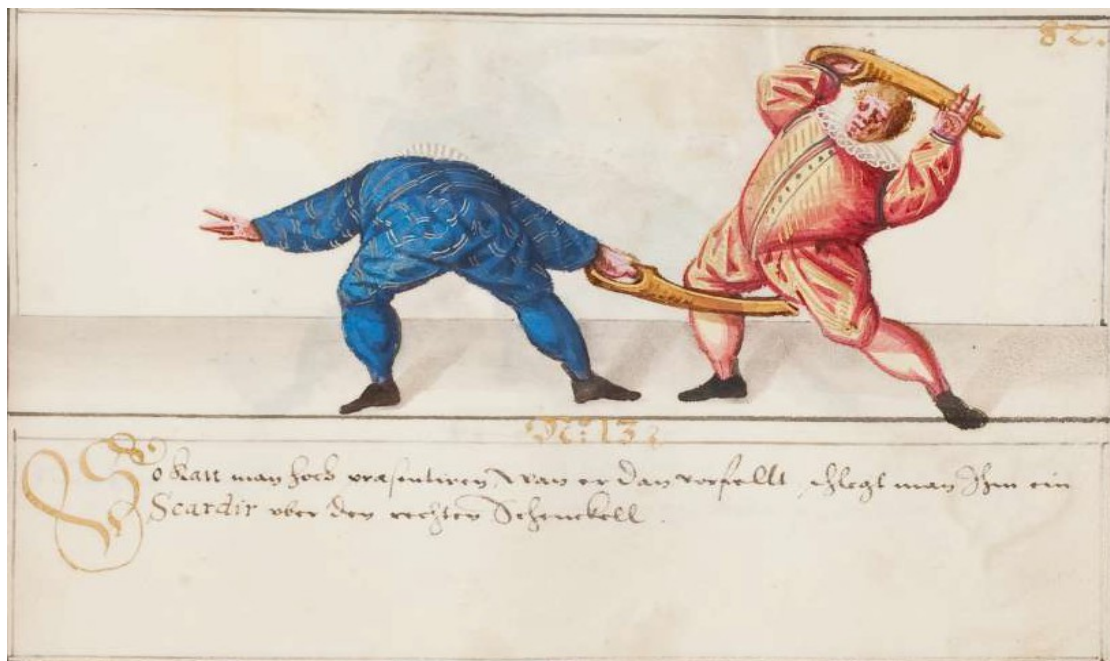 82.
No: 13
So Katt man hoch præsentiren, Wan er dan vorfellt, schlegt man Ihm ein
Scardir vber den rechten Schenckell.